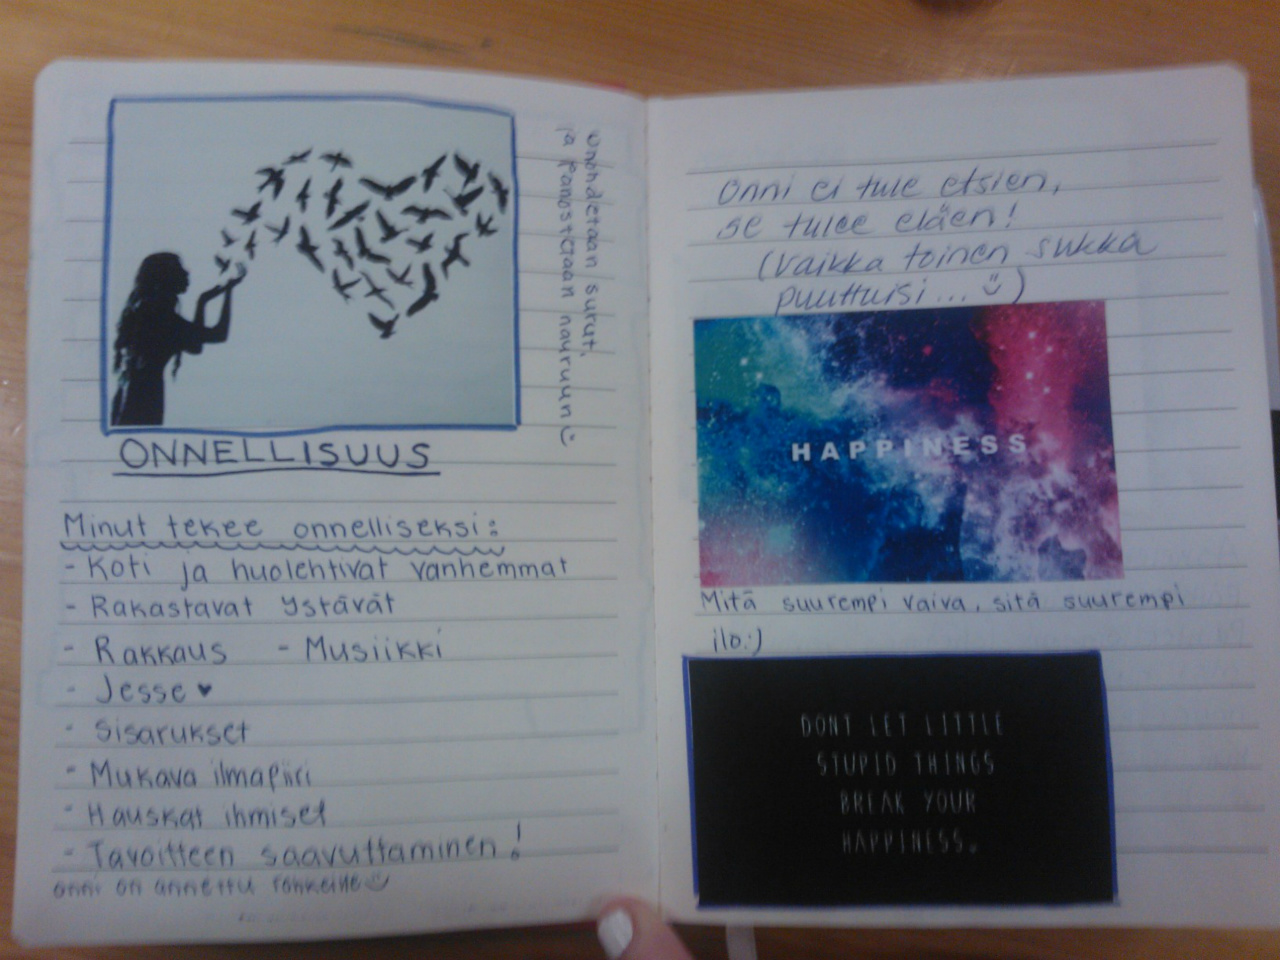 ONNELLISUUS
Minut tekee onnelliseksi:
- Koti ja huolehtivat vanhemmat
- Rakastavat ystävät
- Rakkaus - Musiikki
- Jesse ♥
- Sisarukset
- Mukava ilmapiiri
- Hauskat ihmiset
- Tavoitteen saavuttaminen!
onni on annettu rohkeille
Unohdetaan surut,
ja panostetaan nauruun
Onni ei tule etsien,
se tulee eläen!
(Vaikka toinen sukka
puuttuisi... )
HAPPINESS
Mitä suurempi vaiva, sitä suurempi
ilo:)
DONT LET LITTLE
STUPID THINGS
BREAK YOUR
HAPPINESS.